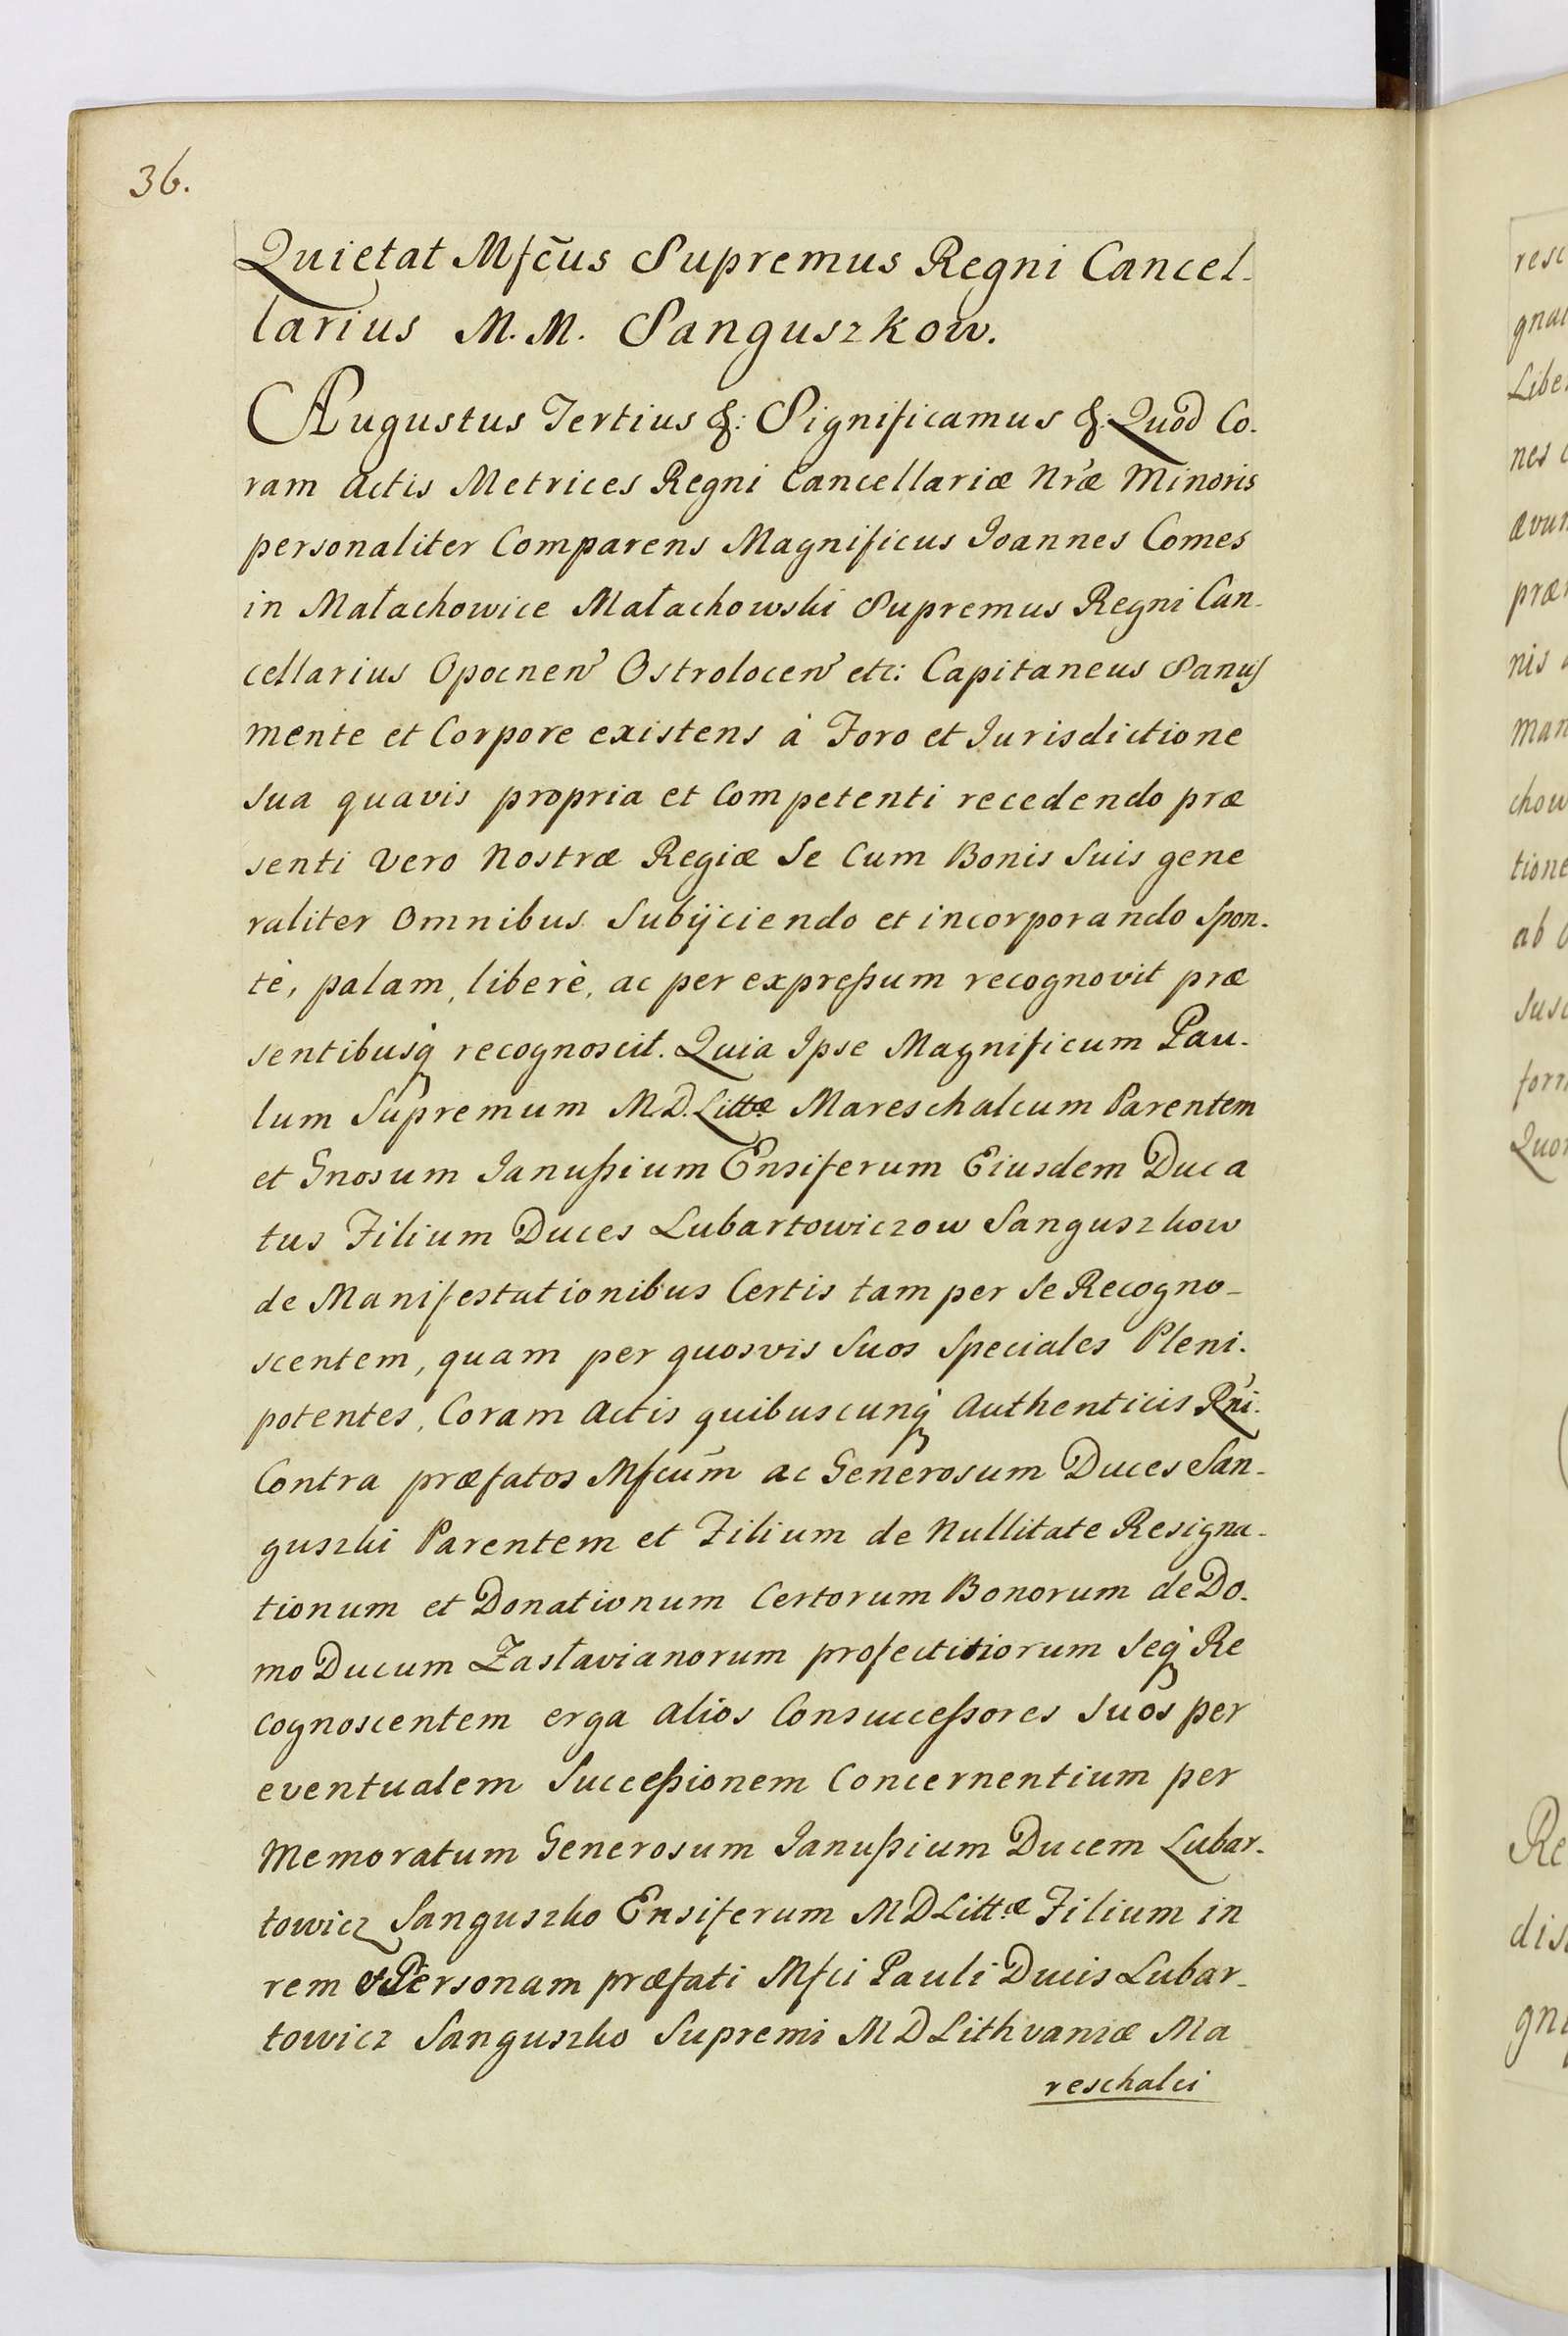 36.
Quietat Mfc̃us Supremus Regni Cancel-
larius M. M. Sanguszkow.
Augustus Tertius &: Significamus &: Quod Co-
ram Actis Metrices Regni Cancellariæ Nr̃æ Minoris
personaliter Comparens Magnificus Joannes Comes
in Małachowice Małachowski Supremus Regni Can-
cellarius Opocnen̉ Ostrolocen̉ etc: Capitaneus Sanus
mente et Corpore existens à Foro et Jurisdictione
sua quavis propria et Competenti recedendo præ
senti Vero Nostræ Regiæ Se Cum Bonis Suis gene
raliter Omnibus Subijciendo et incorporando Spon-
tè, palam, liberè, ac per expreßum recognovit præ
sentibusq̓ recognoscit. Quia Ipse Magnificum Pau-
lum Supremum M.D. Littæ Mareschalcum Parentem
et Gnosum Janußium Ensiferum Eiusdem Duca
tus Filium Duces Lubartowiczow Sanguszkow
de Manifestationibus Certis tam per Se Recogno-
scentem, quam per quosvis Suos Speciales Pleni-
potentes, Coram Actis quibuscunq̓ Authenticis Rn̓i.
Contra præfatos Mfcum̃ ac Generosum Duces San-
guszki Parentem et Filium de Nullitate Resigna-
tionum et Donationum Certorum Bonorum de Do-
mo Ducum Zasłavianorum profectitiorum Seq̓ Re
cognoscentem erga alios Consucceßores Suos per
eventualem Succeßionem Concernentium per
Memoratum Generosum Janußium Ducem Lubar-
towicz Sanguszko Ensiferum M D Littæ Filium in
rem et Personam præfati Mfci Pauli Ducis Lubar-
towicz Sanguszko Supremi M D Lithvaniæ Ma
reschalci
resc
gna
Libe
nes
præ
nis
man
chow
tione
ab
Susc
form
Quo
Re
dis